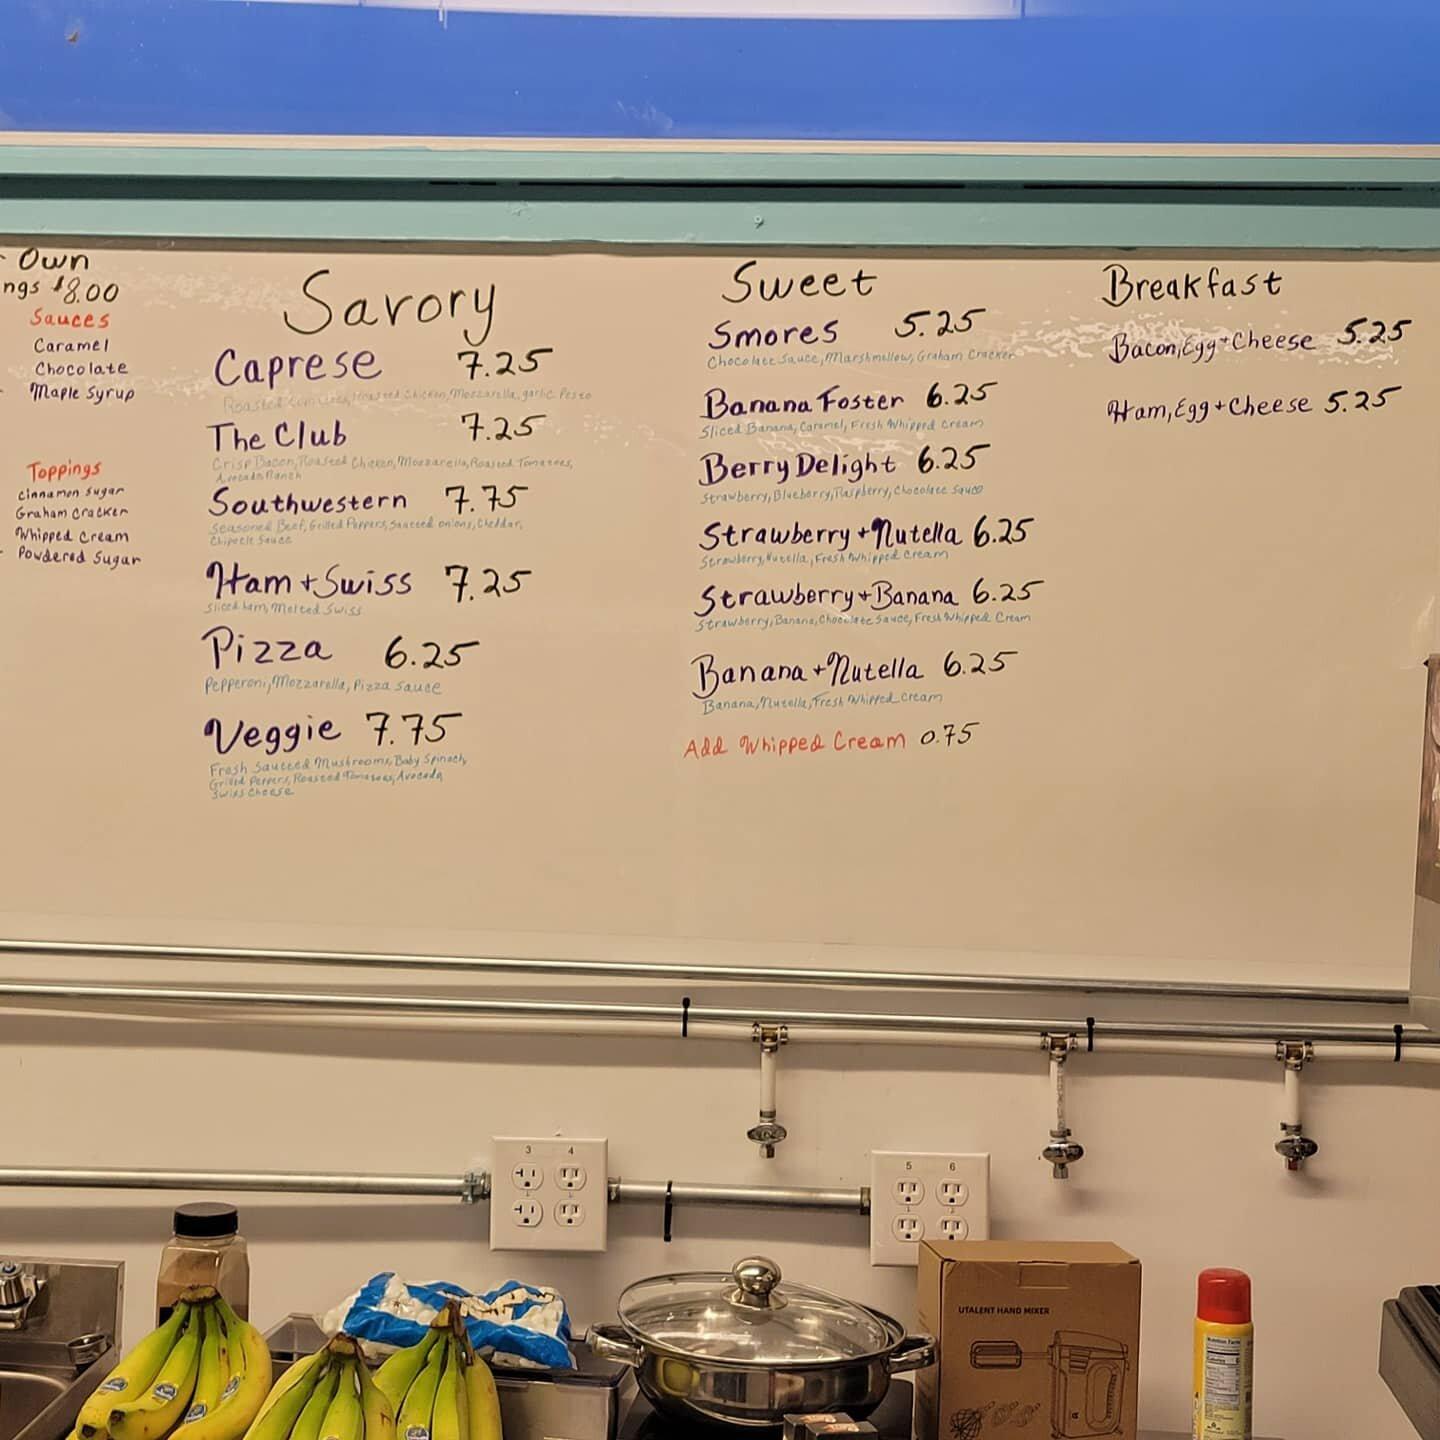 Own
ngs $8.00
Sauces
Caramel
Chocolate
Maple Syrup
Toppings
Cinnamon Sugar
Graham Cracker
Whipped Cream
Powdered Sugar
Savory
Caprese 7.25
Roasted Tomatoes, Roasted Chicken, Mozzarella, garlic Pesto
The Club 7.25
Crisp Bacon, Roasted Chicken, Mozzarella, Roasted Tomatoes,
Avocado Ranch
Southwestern 7.75
Seasoned Beef, Grilled Peppers, Sauteed onions, Cheddar,
Chipotle Sauce
Ham + Swiss 7.25
Sliced ham, Melted Swiss
Pizza 6.25
Pepperoni, Mozzarella, Pizza Sauce
Veggie 7.75
Fresh Sauteed Mushrooms, Baby Spinach,
Grilled Peppers, Roasted Tomatoes, Avocado,
Swiss Cheese
Sweet
Smores 5.25
Chocolate Sauce, Marshmellow, Graham Cracker
Banana Foster 6.25
Sliced Banana, Caramel, Fresh Whipped Cream
Berry Delight 6.25
Strawberry, Blueberry, Raspberry, Chocolate Sauce
Strawberry + Nutella 6.25
Strawberry, Nutella, Fresh Whipped Cream
Strawberry + Banana 6.25
Strawberry, Banana, Chocolate Sauce, Fresh Whipped Cream
Banana + Nutella 6.25
Banana, Nutella, Fresh Whipped Cream
Add Whipped Cream 0.75
Breakfast
Bacon, Egg + Cheese 5.25
Ham, Egg + Cheese 5.25
3 4
5 6
UTALENT HAND MIXER
Nutrition Facts